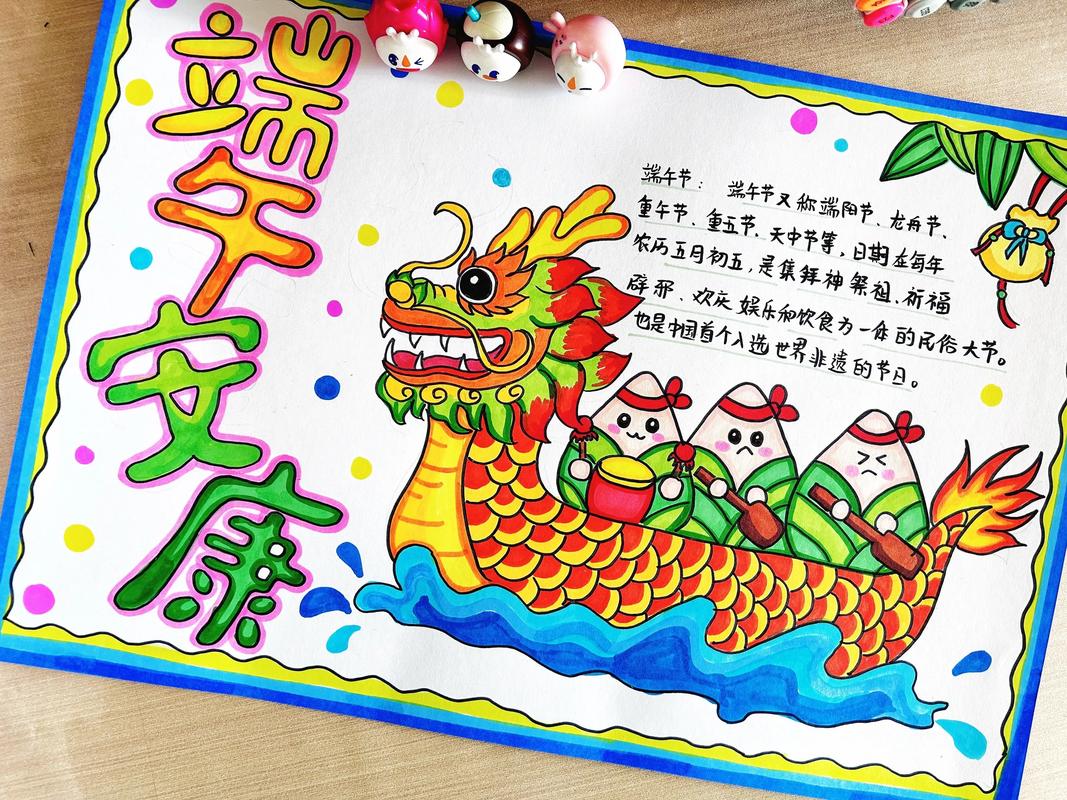 端午安康
端午节： 端午节又称端阳节、龙舟节、
重午节、重五节、天中节等，日期在每年
农历五月初五，是集拜神祭祖、祈福
辟邪、欢庆娱乐和饮食为一体的民俗大节。
也是中国首个入选世界非遗的节日。